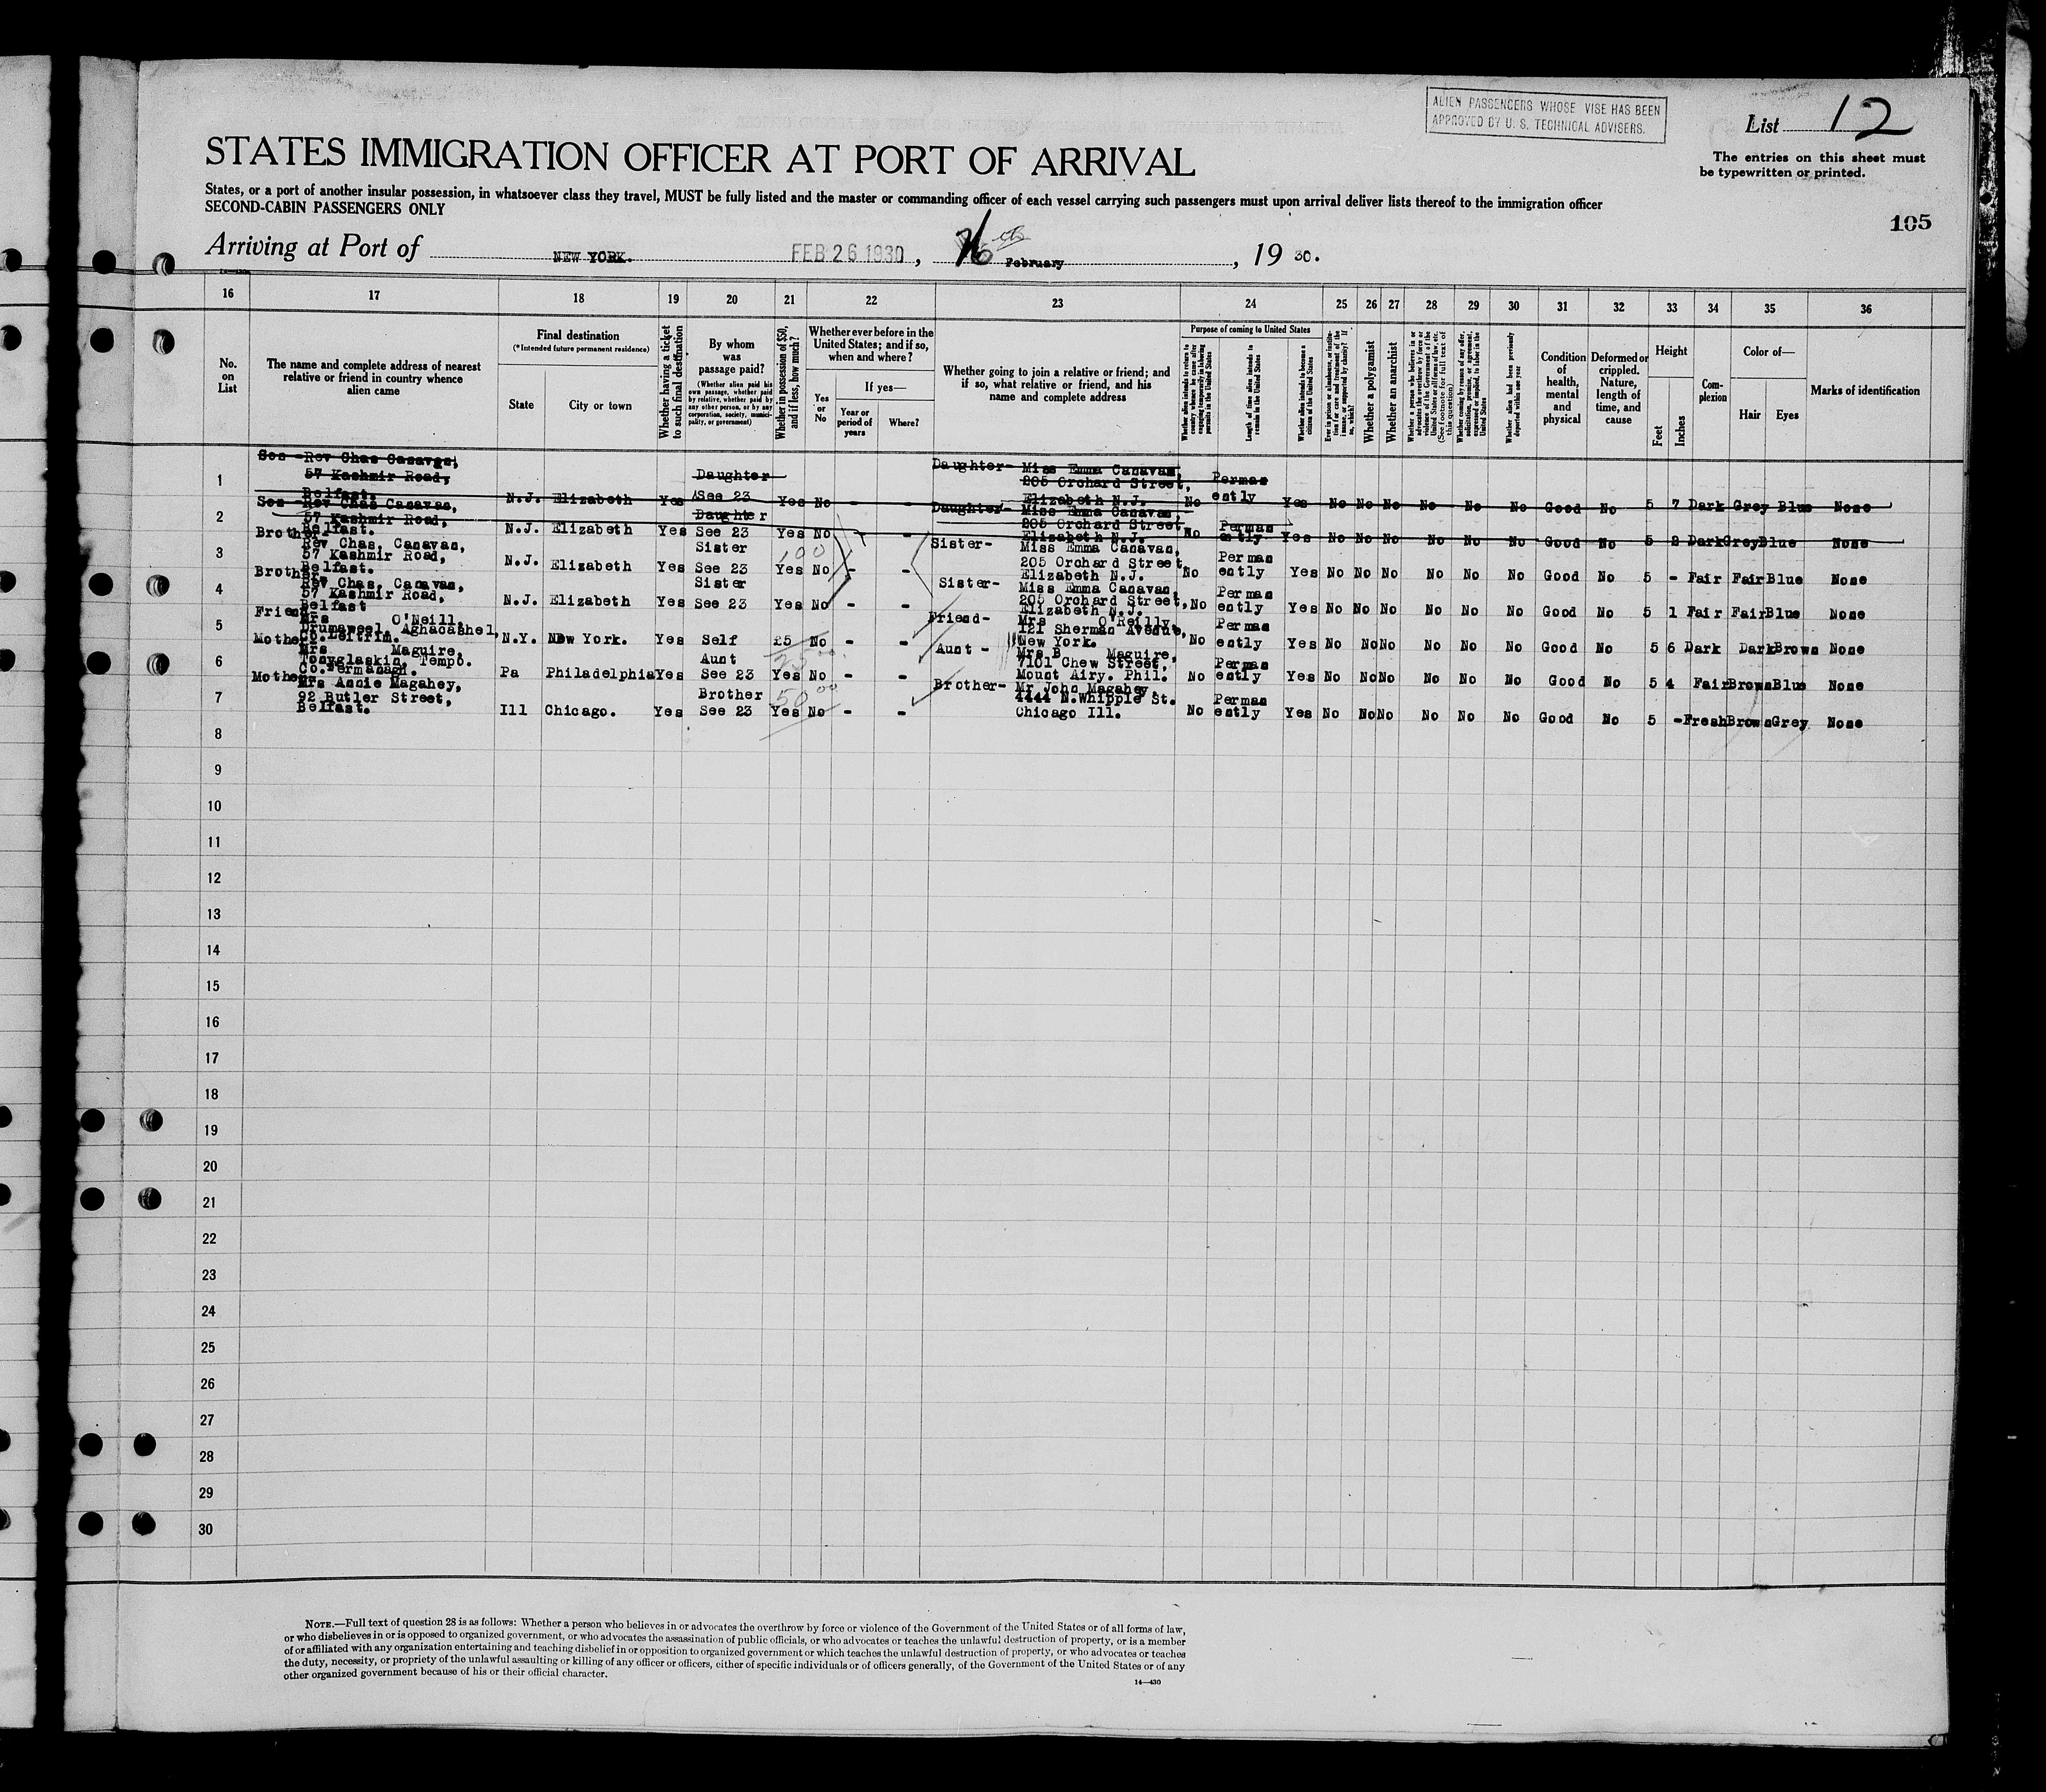 ALIEN PASSENGERS WHOSE VISE HAS BEEN
APPROVED BY U. S. TECHNICAL ADVISERS.
List 12
The entries on this sheet must
be typewritten or printed.
STATES IMMIGRATION OFFICER AT PORT OF ARRIVAL
States, or a port of another insular possession, in whatsoever class they travel, MUST be fully listed and the master or commanding officer of each vessel carrying such passengers must upon arrival deliver lists thereof to the immigration officer
SECOND-CABIN PASSENGERS ONLY
105
Arriving at Port of NEW YORK. FEB 26 1930, February, 19 30.
16 17 18 19 20 21 22 23 24 25 26 27 28 29 30 31 32 33 34 35 36
No. on List
The name and complete address of nearest relative or friend in country whence alien came
Final destination
(*Intended future permanent residence)
State
City or town
Whether having a ticket to such final destination
By whom was passage paid?
(Whether alien paid his own passage, whether paid by relative, whether paid by any other person, or by any corporation, society, municipality, or government)
Whether in possession of $50, and if less, how much?
Whether ever before in the United States; and if so, when and where?
Yes or No
If yes—
Year or period of years
Where?
Whether going to join a relative or friend; and if so, what relative or friend, and his name and complete address
Purpose of coming to United States
Whether alien intends to return to country whence he came after engaging temporarily in laboring pursuits in the United States
Length of time alien intends to remain in the United States
Whether alien intends to become a citizen of the United States
Whether a polygamist
Whether an anarchist
(See footnote for full text of this question)
Whether alien had been previously deported within one year
Condition of health, mental and physical
Deformed or crippled. Nature, length of time, and cause
Height
Feet
Inches
Complexion
Color of—
Hair
Eyes
Marks of identification
1 Son - Rev Chas Canavan, 57 Kashmir Road, Belfast. N.J. Elizabeth Yes Daughter See 23 Yes No - - Daughter- Miss Emma Canavan, 205 Orchard Street, Elizabeth N.J. No Permanently Yes No No No No No No Good No 5 7 Dark Grey Blue None
2 Son - Rev Chas Canavan, 57 Kashmir Road, Belfast. N.J. Elizabeth Yes Daughter See 23 Yes No - Daughter- Miss Emma Canavan, 205 Orchard Street Elizabeth N.J. No Permanently Yes No No No No No No Good No 5 2 Dark Grey Blue None
3 Brother Rev Chas. Canavan, 57 Kashmir Road, Belfast. N.J. Elizabeth Yes Sister See 23 Yes 100 No - - Sister- Miss Emma Canavan, 205 Orchard Street, Elizabeth N.J. No Permanently Yes No No No No No No Good No 5 - Fair Fair Blue None
4 Brother Rev Chas. Canavan, 57 Kashmir Road, Belfast N.J. Elizabeth Yes Sister See 23 Yes No - - Sister- Miss Emma Canavan, 205 Orchard Street, Elizabeth N.J. No Permanently Yes No No No No No No Good No 5 1 Fair Fair Blue None
5 Friend Mrs O'Neill, Drumaweel, Aghacashel, Co. Leitrim. N.Y. New York. Yes Self £5 No - - Friend- Mrs O'Reilly, 121 Sherman Avenue, New York. No Permanently Yes No No No No No No Good No 5 6 Dark Dark Brown None
6 Mother Mrs Maguire, Tonyglaskin, Tempo. Co. Fermanagh. Pa Philadelphia Yes Aunt See 23 Yes 25 00 No - - Aunt - Mrs B Maguire, 7101 Chew Street, Mount Airy. Phil. No Permanently Yes No No No No No No Good No 5 4 Fair Brown Blue None
7 Mother Mrs Annie Magahey, 92 Butler Street, Belfast. Ill Chicago. Yes Brother See 23 Yes 50 00 No - - Brother- Mr John Magahey. 4444 N. Whipple St. Chicago Ill. No Permanently Yes No No No No No No Good No 5 - Fresh Brown Grey None
8
9
10
11
12
13
14
15
16
17
18
19
20
21
22
23
24
25
26
27
28
29
30
NOTE.—Full text of question 28 is as follows: Whether a person who believes in or advocates the overthrow by force or violence of the Government of the United States or of all forms of law,
or who disbelieves in or is opposed to organized government, or who advocates the assassination of public officials, or who advocates or teaches the unlawful destruction of property, or is a member
of or affiliated with any organization entertaining and teaching disbelief in or opposition to organized government or which teaches the unlawful destruction of property, or who advocates or teaches
the duty, necessity, or propriety of the unlawful assaulting or killing of any officer or officers, either of specific individuals or of officers generally, of the Government of the United States or of any
other organized government because of his or their official character.
14—430